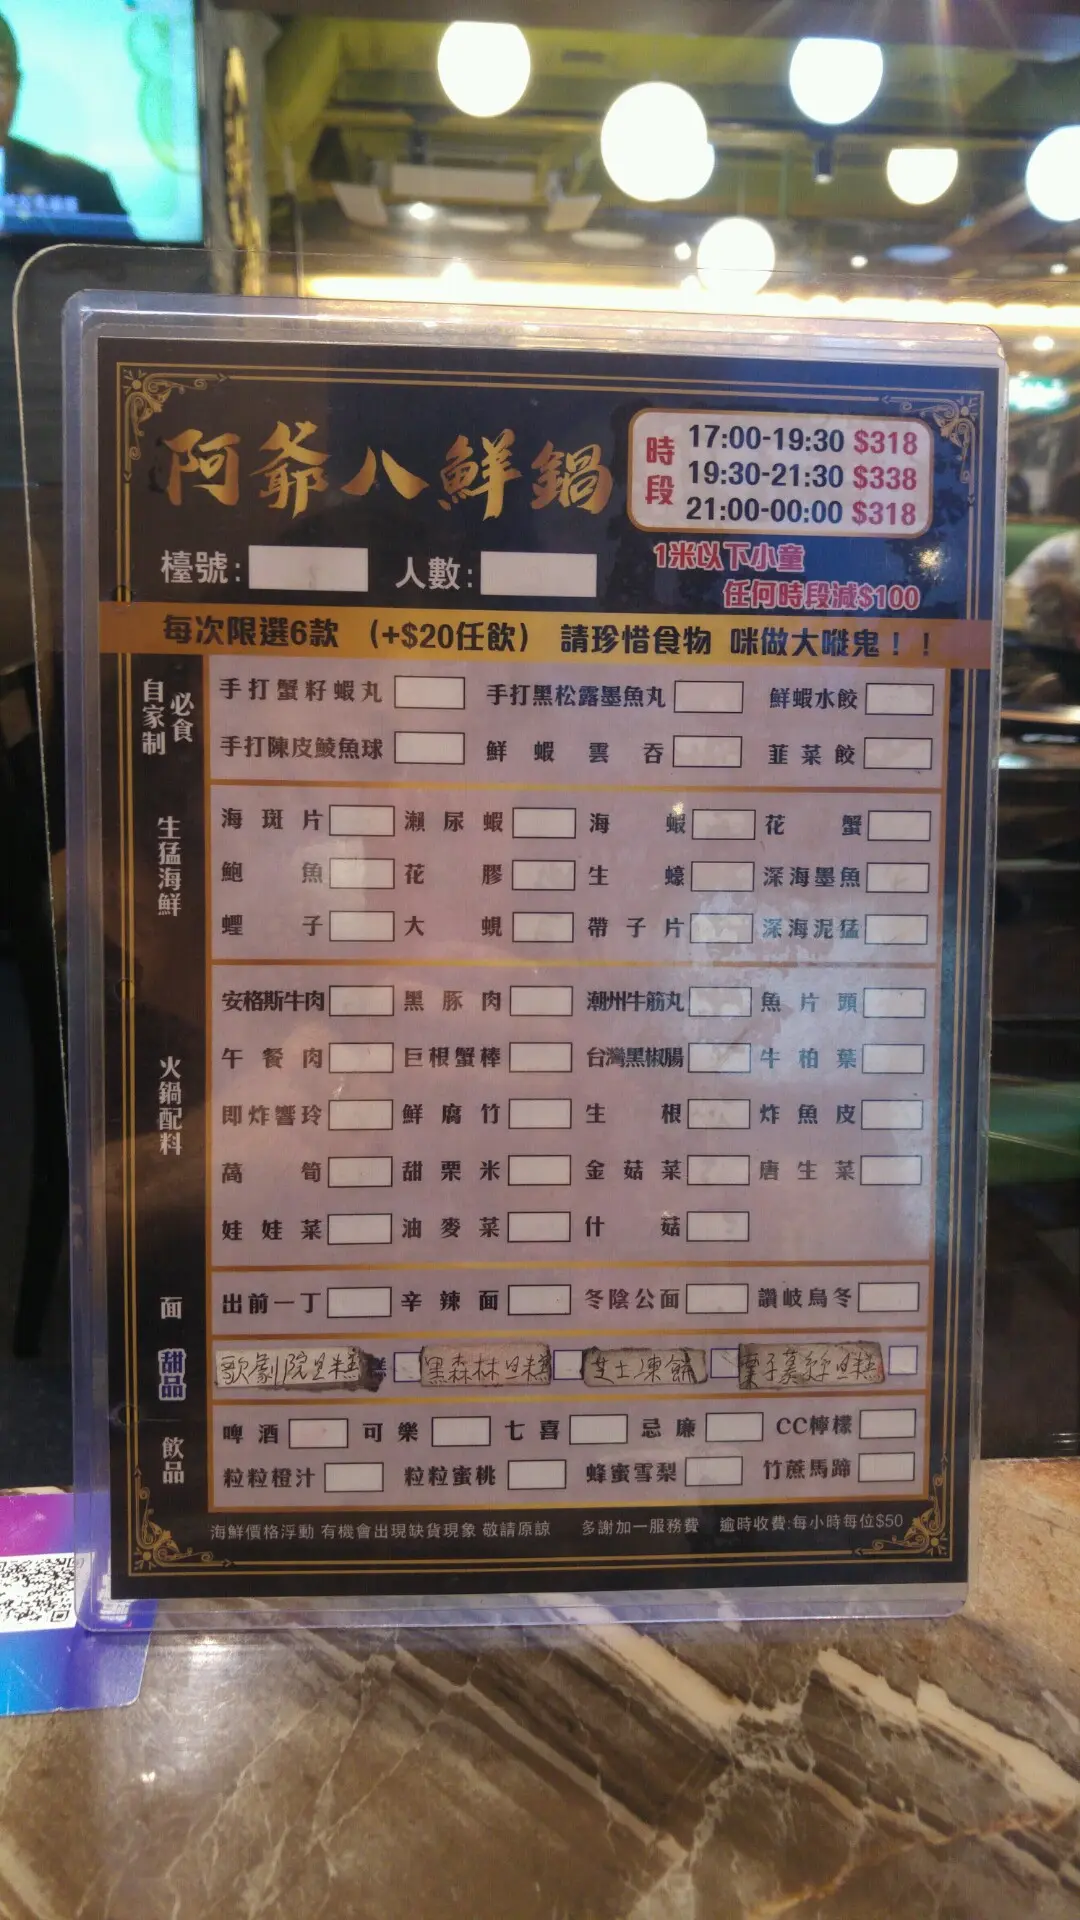 阿爺八鮮鍋
時段
17:00-19:30 $318
19:30-21:30 $338
21:00-00:00 $318
檯號: 人數:
1米以下小童
任何時段減$100
每次限選6款 (+$20任飲) 請珍惜食物 咪做大嘥鬼!!
自家制 必食
手打蟹籽蝦丸 手打黑松露墨魚丸 鮮蝦水餃
手打陳皮鯪魚球 鮮蝦雲吞 韮菜餃
生猛海鮮
海斑片 瀨尿蝦 海蝦 花蟹
鮑魚 花膠 生蠔 深海墨魚
蟶子 大蜆 帶子片 深海泥猛
火鍋配料
安格斯牛肉 黑豚肉 潮州牛筋丸 魚片頭
午餐肉 巨根蟹棒 台灣黑椒腸 牛柏葉
即炸響玲 鮮腐竹 生根 炸魚皮
萵筍 甜栗米 金菇菜 唐生菜
娃娃菜 油麥菜 什菇
面
出前一丁 辛辣面 冬陰公面 讚岐烏冬
甜品
歌劇院旦糕 黑森林旦糕 芝士凍餅 栗子慕絲旦糕
飲品
啤酒 可樂 七喜 忌廉 CC檸檬
粒粒橙汁 粒粒蜜桃 蜂蜜雪梨 竹蔗馬蹄
海鮮價格浮動 有機會出現缺貨現象 敬請原諒 多謝加一服務費 逾時收費:每小時每位$50